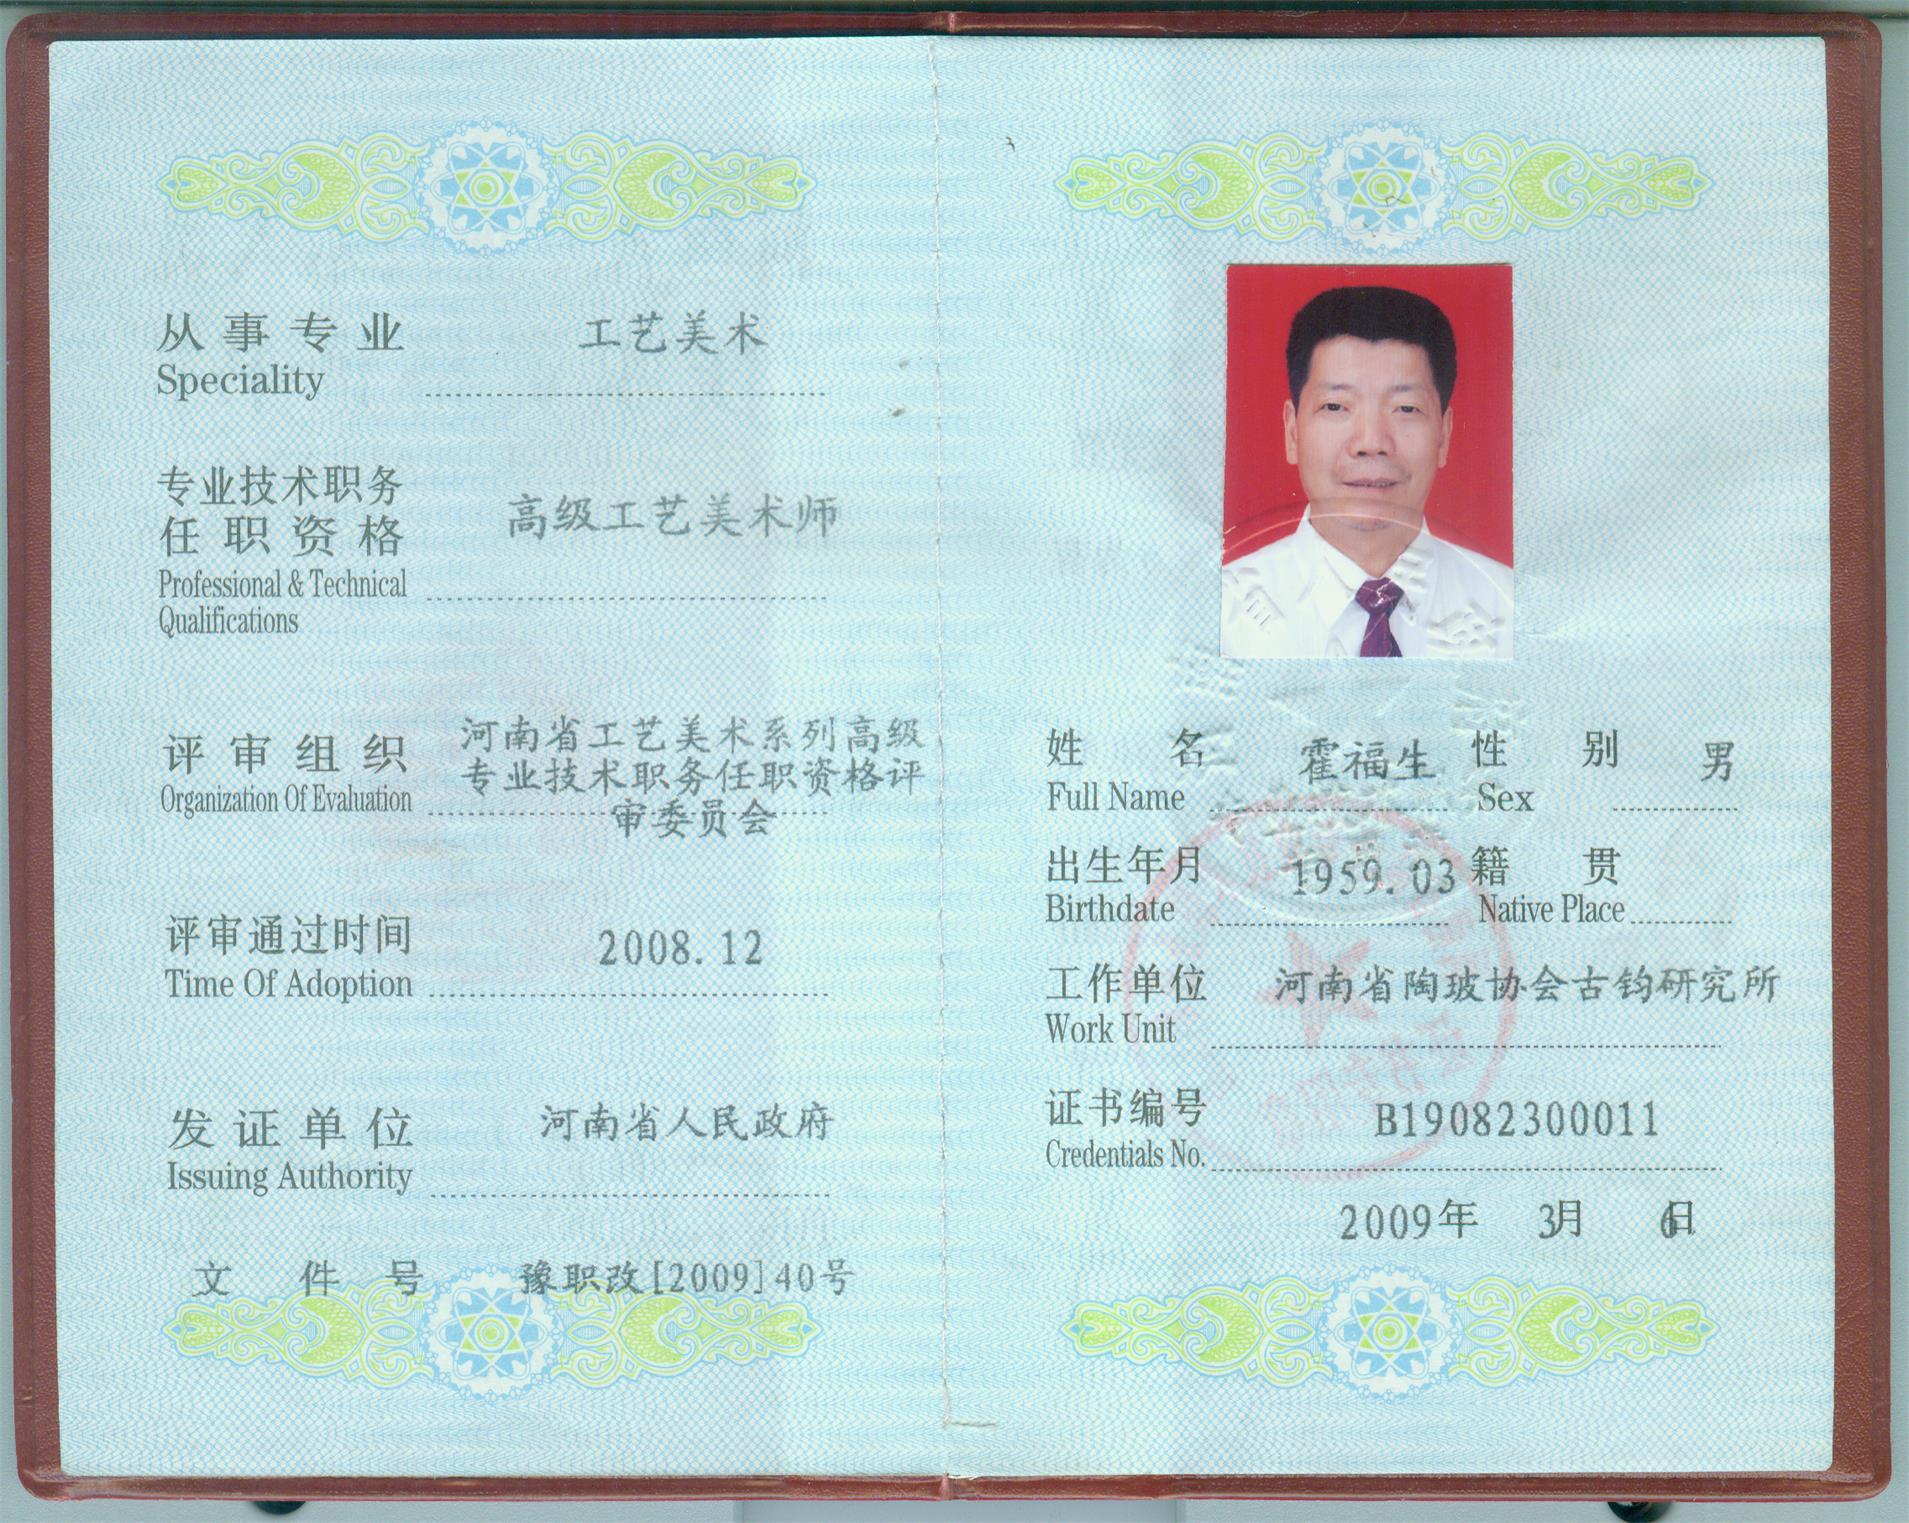 从事专业 工艺美术
Speciality
专业技术职务
任职资格 高级工艺美术师
Professional & Technical
Qualifications
河南省工艺美术系列高级
评审组织 专业技术职务任职资格评
Organization Of Evaluation 审委员会
评审通过时间 2008.12
Time Of Adoption
发证单位 河南省人民政府
Issuing Authority
文件号 豫职改[2009]40号
姓名 霍福生 性别 男
Full Name Sex
出生年月 1959.03 籍贯
Birthdate Native Place
工作单位 河南省陶玻协会古钧研究所
Work Unit
证书编号 B19082300011
Credentials No.
2009年 3月 6日